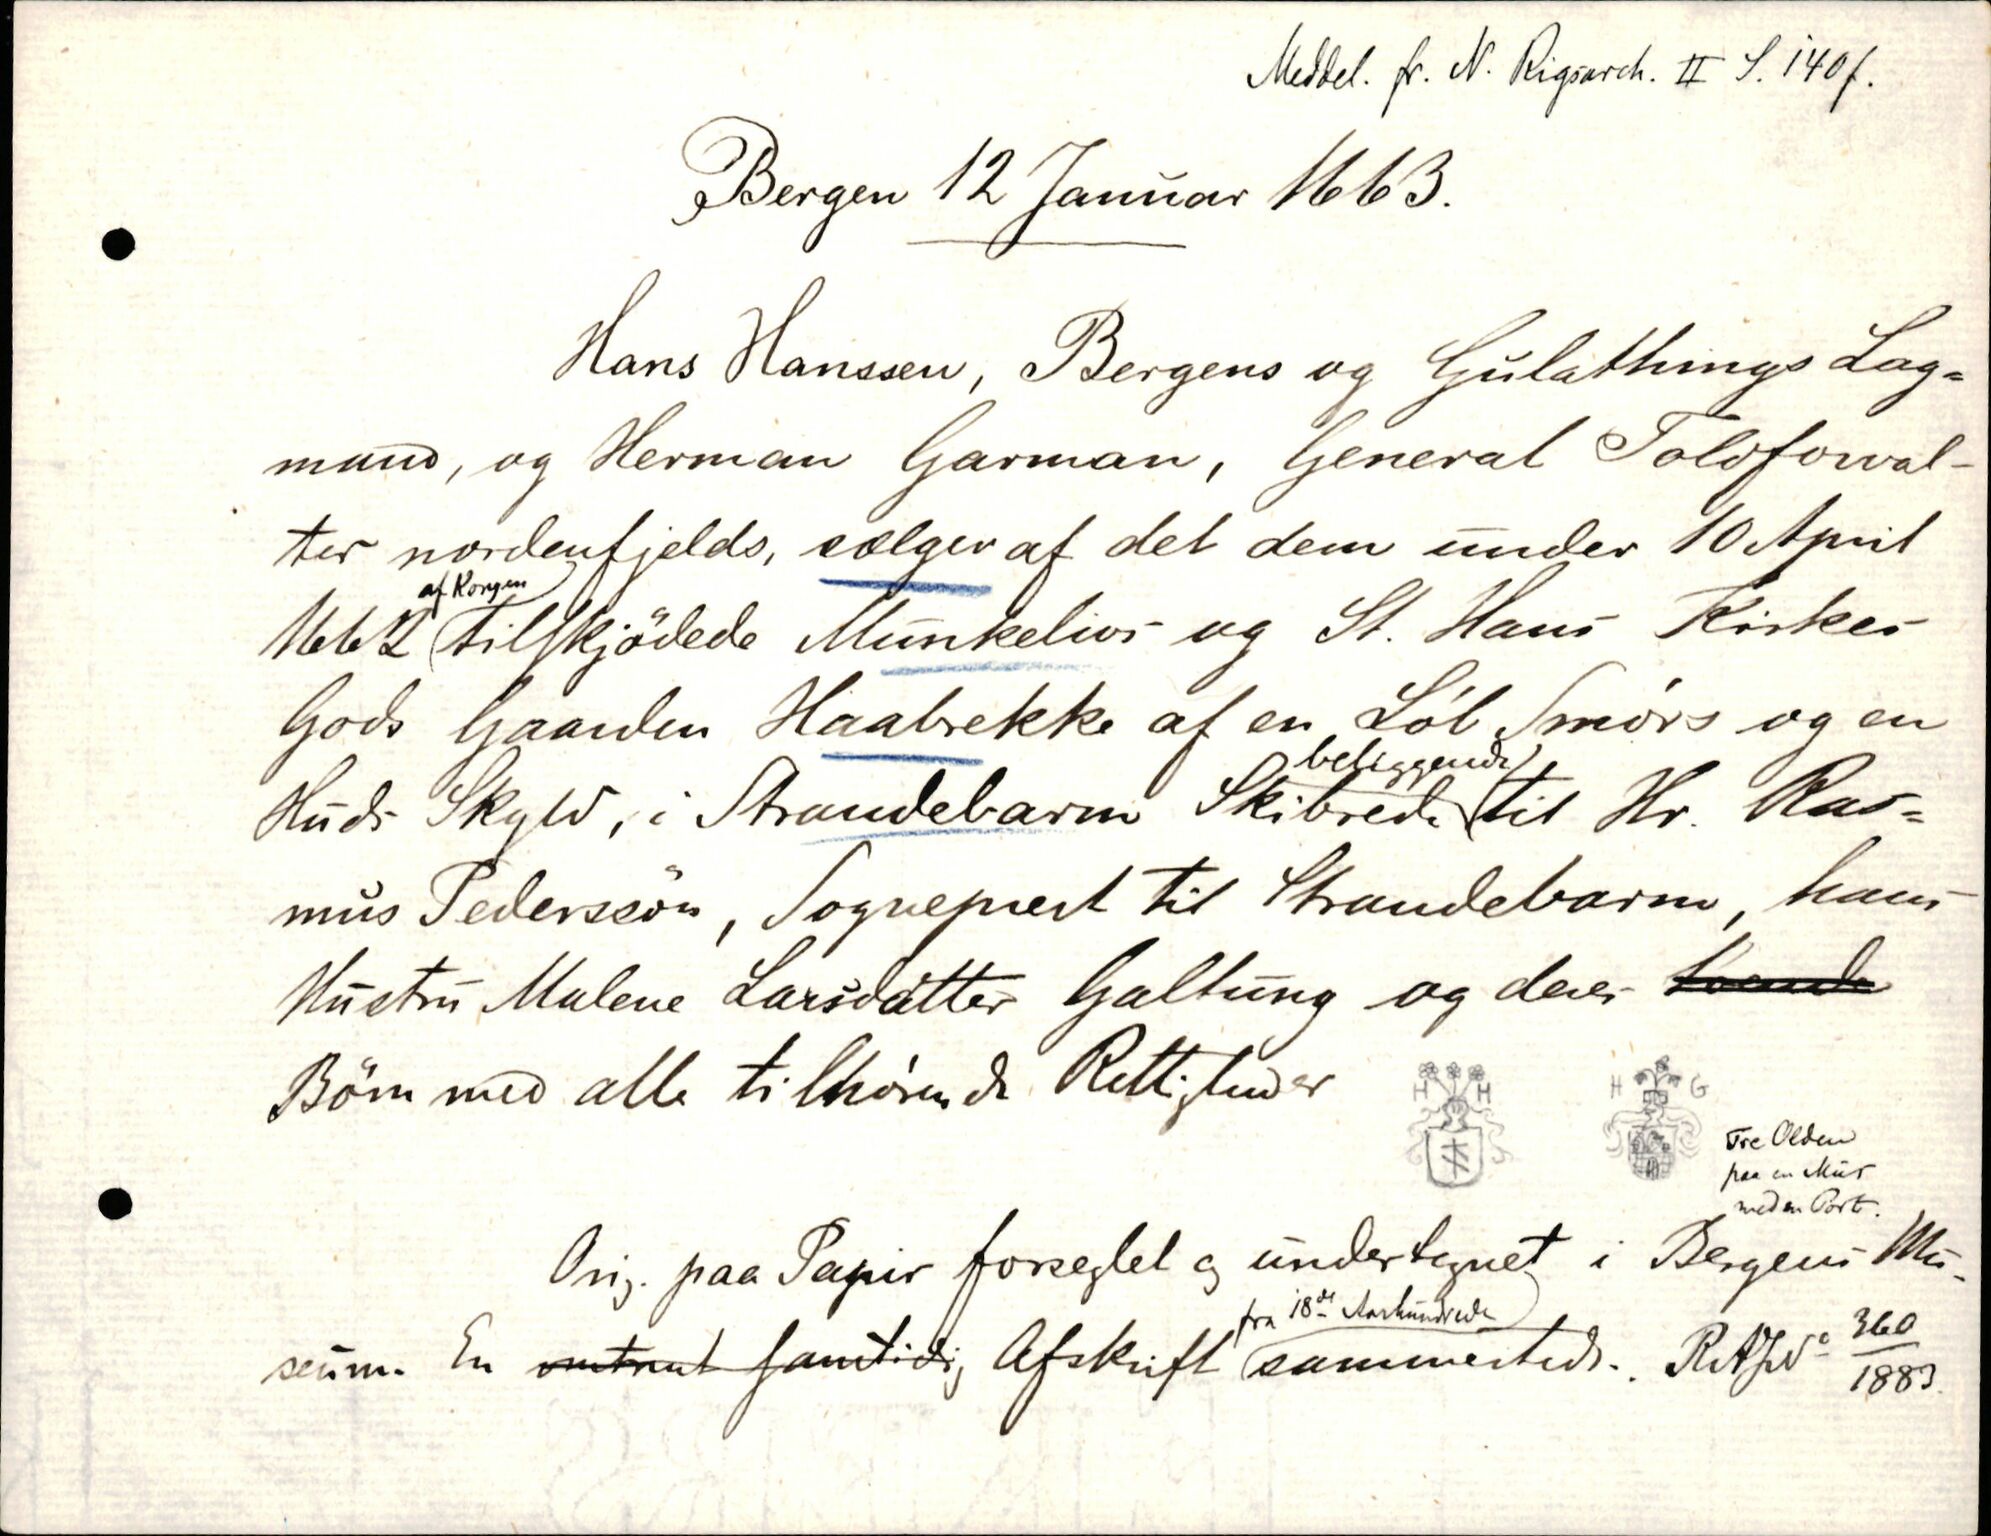 Meddel. fr. N. Rigsarch. II S. 140 f.
Bergen 12 Januar 1663.
Hans Hanssen, Bergens og Gulathings Lag=
mand, og Herman Garman, General Toldforval-
ter nordenfjelds, sælger af det dem under 10 April
af Kongen
1662 tilskjödede Munkelivs og St. Hans Kirkes
Gods Gaarden Haabrekke af en Løb Smørs og en
beliggende
Huds Skyld, i Strandebarm Skibrede til Hr. Ras=
mus Pederssön, Sogneprest til Strandebarm, hans
Hustru Malene Larsdatter Galtung og deres
Börn med alle tilhörende Rettigheder
H H
H G
Tre Olden
paa en Mur
med en Port.
Orig. paa Papir forseglet og undertegnet i Bergens Mu-
fra 18de Aarhundrede
seum. En omtrent samtidig Afskrift sammesteds. RA JNo 360/1883.